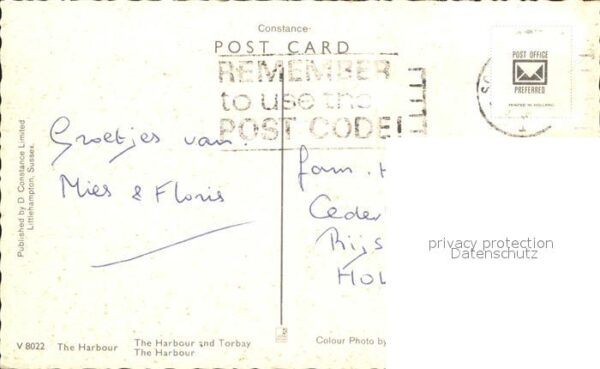 Constance
POST CARD
REMEMBER
to use the
POST CODE!
POST OFFICE
PREFERRED
PRINTED IN HOLLAND
Groetjes van
Mies & Floris
fam. H
Ceder
Rijs
HOL
privacy protection
Datenschutz
Published by D. Constance Limited
Littlehampton, Sussex.
V 8022 The Harbour The Harbour and Torbay
The Harbour
Colour Photo by